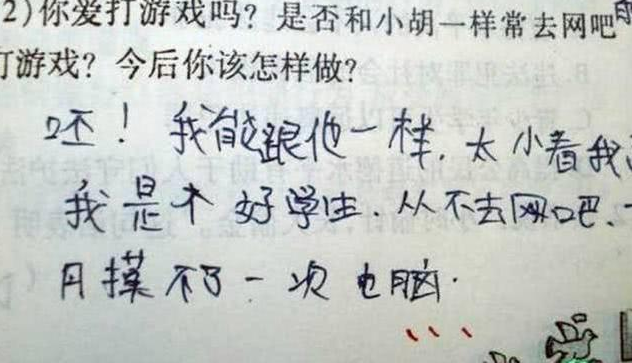 2)你爱打游戏吗?是否和小胡一样常去网吧
打游戏?今后你该怎样做?
呸!我能跟他一样.太小看我
我是个好学生.从不去网吧.一
月摸不了一次电脑.